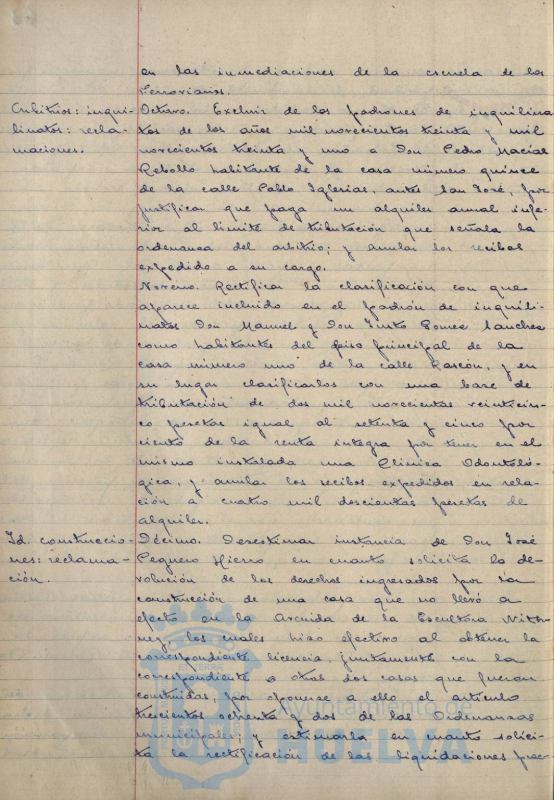 en las inmediaciones de la escuela de los
Ferroviarios.
Arbitrios: inqui-
linatos: recla-
maciones.
Octavo. Excluir de los padrones de inquilina
tos de los años mil novecientos treinta y mil
novecientos treinta y uno a Don Pedro Macías
Rebollo habitante de la casa número quince
de la calle Pablo Iglesias, antes San José, por
justificar que paga un alquiler anual infe-
rior al limite de tributación que señala la
ordenanza del arbitrio; y anular los recibos
expedido a su cargo.
Noveno. Rectificar la clasificación con que
aparece incluido en el padrón de inquili-
natos Don Manuel y Don Justo Ponce Sanchez
como habitantes del piso principal de la
casa número uno de la calle Rascón, y en
su lugar clasificarlos con una base de
tributación de dos mil novecientas veinticin-
co pesetas igual al setenta y cinco por
ciento de la renta integra por tener en el
mismo instalada una Clinica Odontoló-
gica, y anular los recibos expedidos en rela-
ción a cuatro mil doscientas pesetas de
alquiler.
Id. construccio-
nes: reclama-
ción.
Décimo. Desestimar instancia de Don José
Peguero Hierro en cuanto solicita la de-
volución de los derechos ingresados por la
construcción de una casa que no llevó a
efecto en la Avenida de la Escultora Whit-
ney, los cuales hizo efectivo al obtener la
correspondiente licencia, juntamente con la
correspondiente a otras dos casas que fueron
construidas, por oponerse a ello el artículo
trescientos ochenta y dos de las Ordenanzas
municipales; y estimarla en cuanto solici-
ta la rectificación de las liquidaciones prac-
Ayuntamiento de
HUELVA